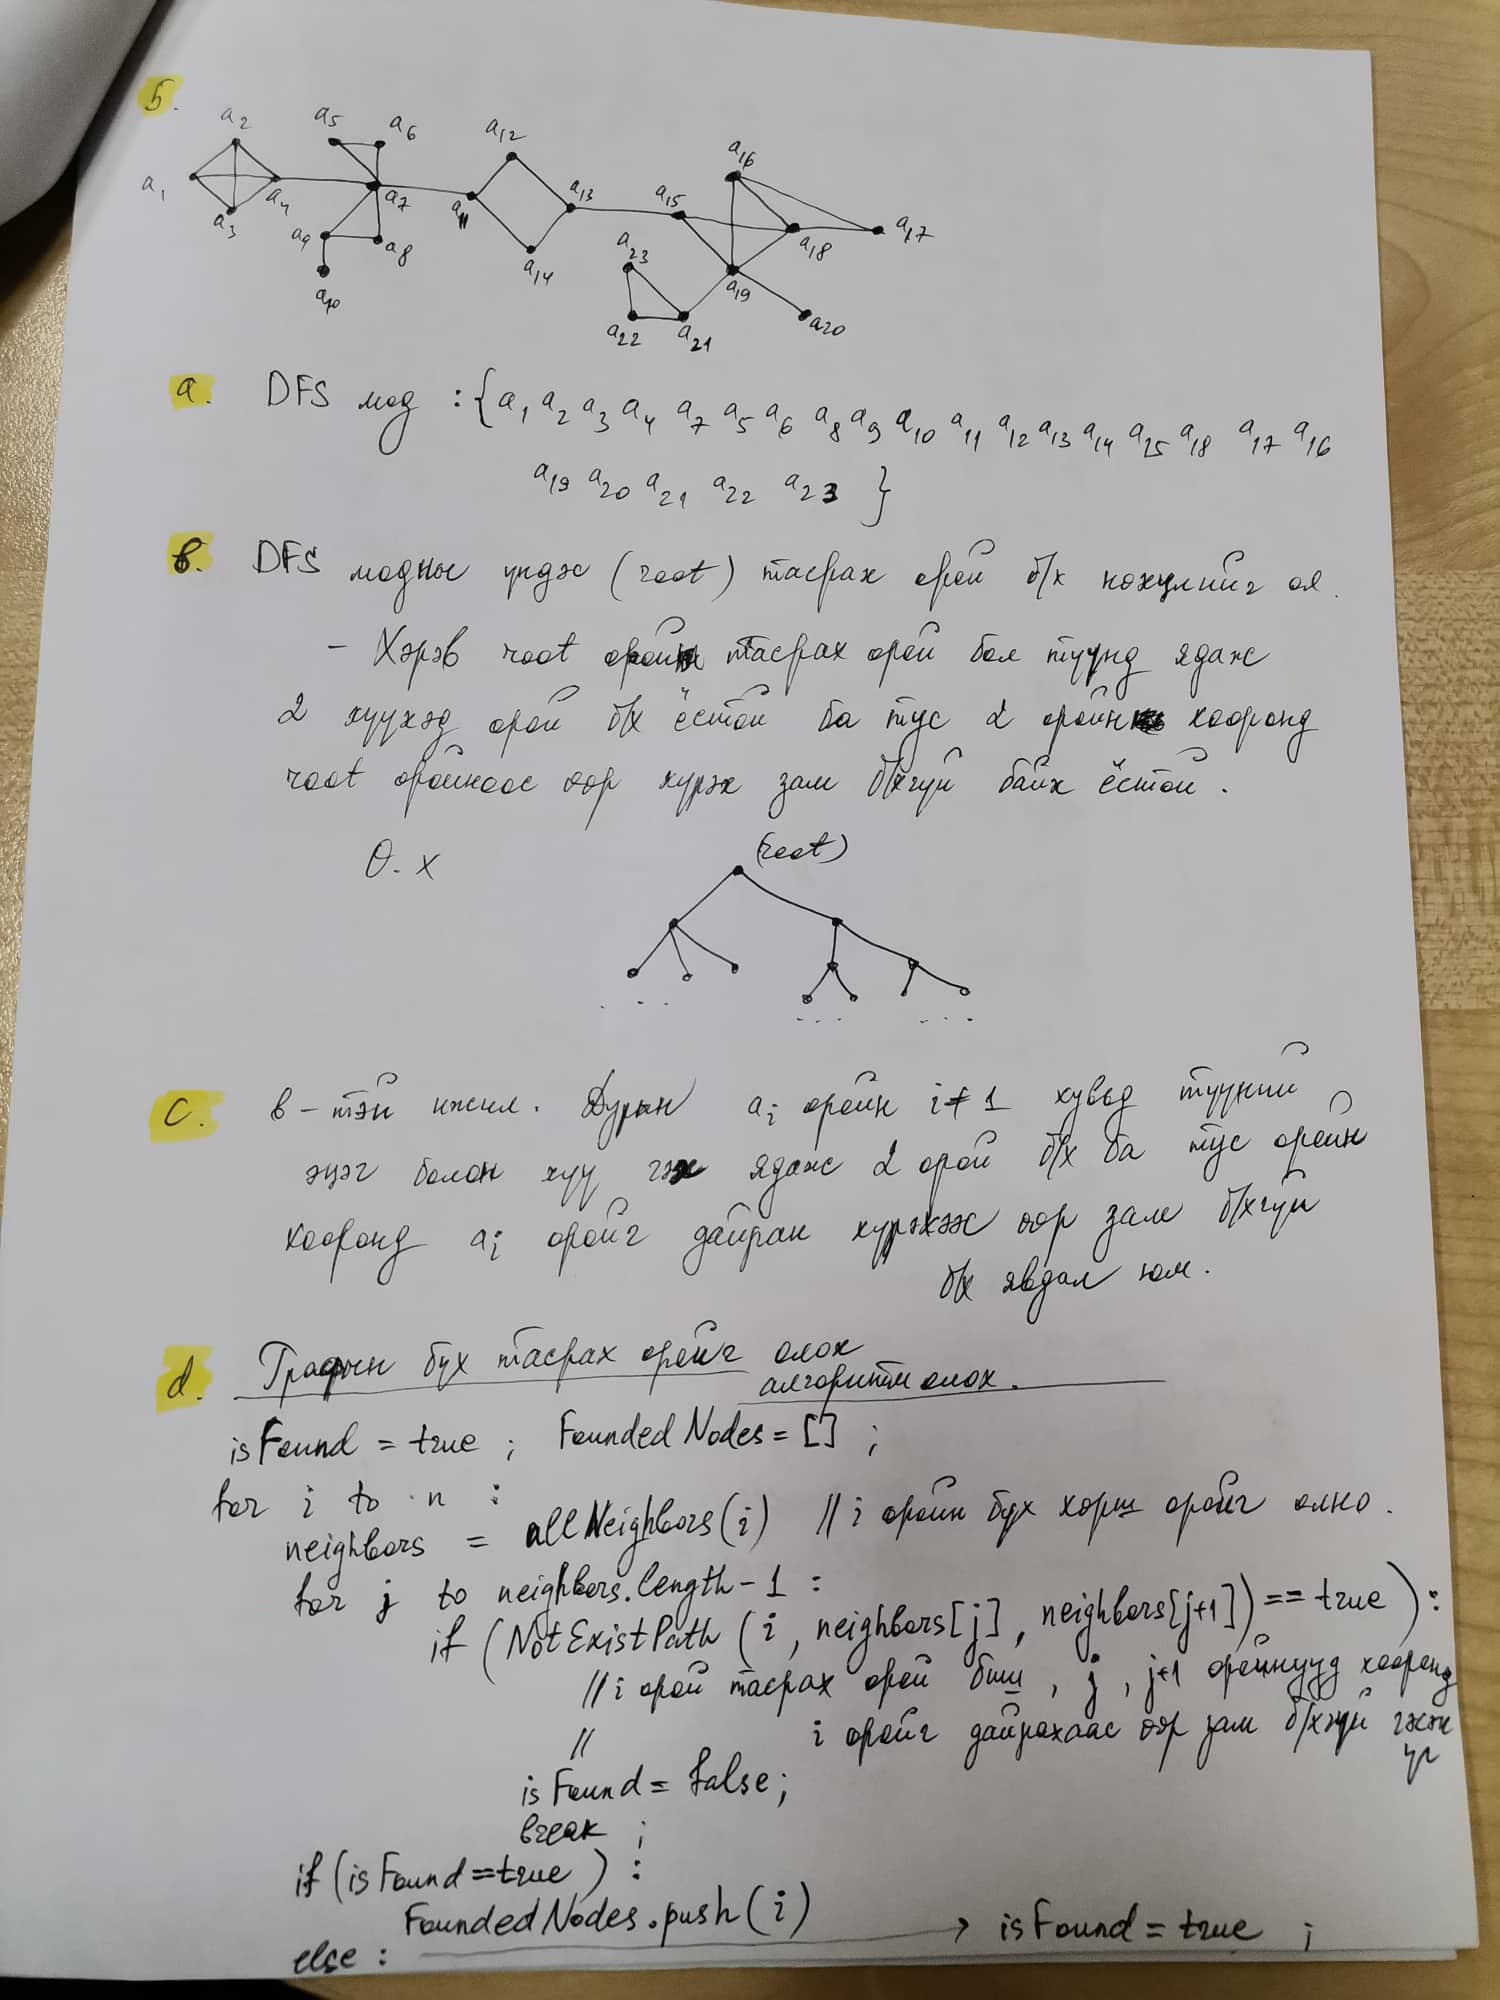 5.
a2 a5 a6 a12 a16
a1 a3 a4 a7 a11 a13 a15 a17
a9 a8 a14 a23 a18
a10 a22 a21 a19 a20
a. DFS мод : { a1 a2 a3 a4 a7 a5 a6 a8 a9 a10 a11 a12 a13 a14 a25 a18 a17 a16
a19 a20 a21 a22 a23 }
b. DFS модны үндэс (root) тасрах орой б/х нөхцлийг ол.
- Хэрэв root орой тасрах орой бол түүнд ядаж
2 хүүхэд орой б/х ёстой ба тус 2 оройн хооронд
root оройноос өөр хүрэх зам б/хгүй байх ёстой.
Ө.х (root)
c. b-тэй ижил. Дурын ai оройн i≠1 хувьд түүний
эцэг болон хүү гэж ядаж 2 орой б/х ба тус оройн
хооронд ai оройг дайран хүрэхээс өөр зам б/хгүй
б/х явдал юм.
d. Графын бүх тасрах оройг олох
алгоритм олох.
isFound = true ; FoundedNodes = [] ;
for i to n :
neighbors = allNeighbors(i) // i оройн бүх хөрш оройг олно.
for j to neighbors.length-1 :
if (NotExistPath (i, neighbors[j], neighbors[j+1]) == true ) :
// i орой тасрах орой биш, j, j+1 оройнууд хооронд
// i оройг дайрахаас өөр зам б/хгүй гэсэн
үг
isFound = false;
break ;
if (isFound == true ) :
FoundedNodes.push(i)
else : → isFound = true ;